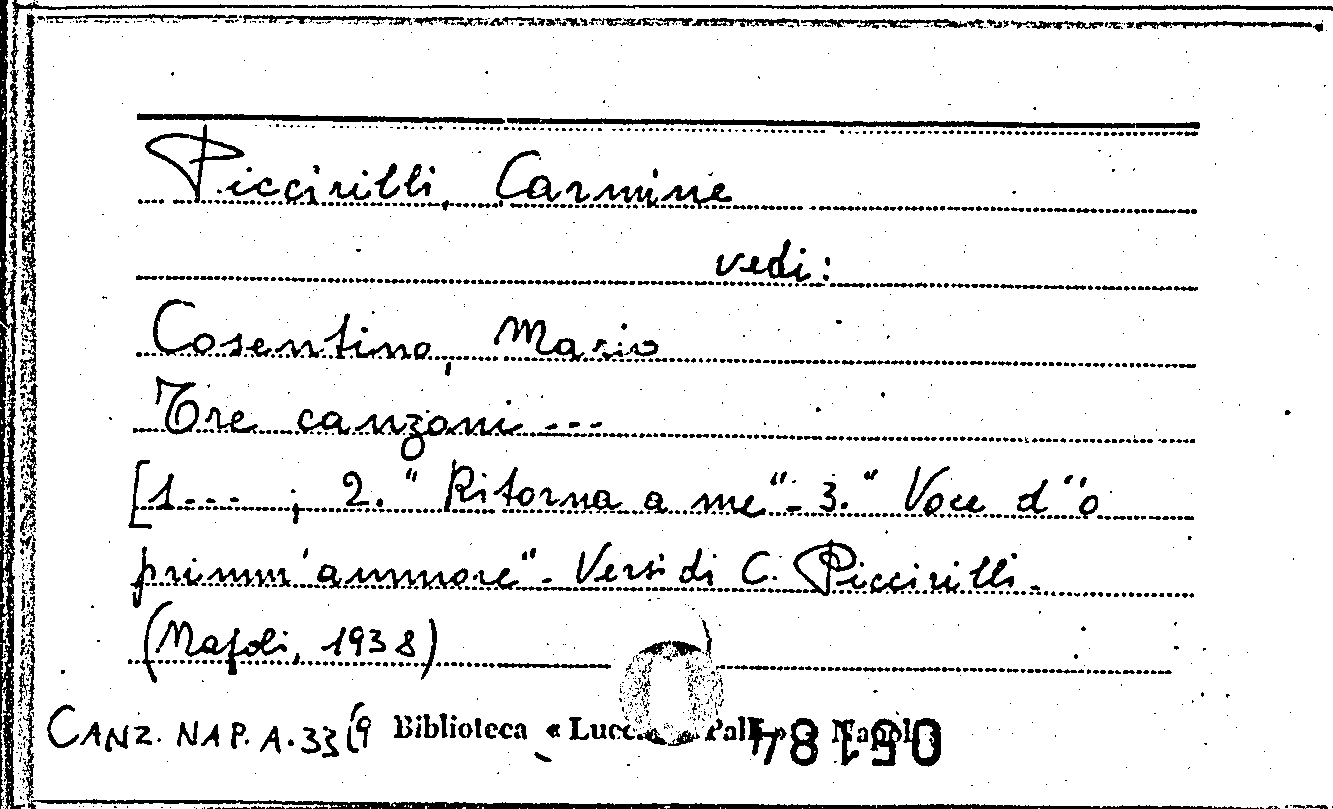 Piccirilli, Carmine
vedi:
Cosentino, Mario
Tre canzoni ---
[1--- ; 2. "Ritorna a me" - 3. "Voce d''o
primm'ammore" - Versi di C. Piccirilli -
(Napoli, 1938)
CANZ. NAP. A. 33(9 Biblioteca «